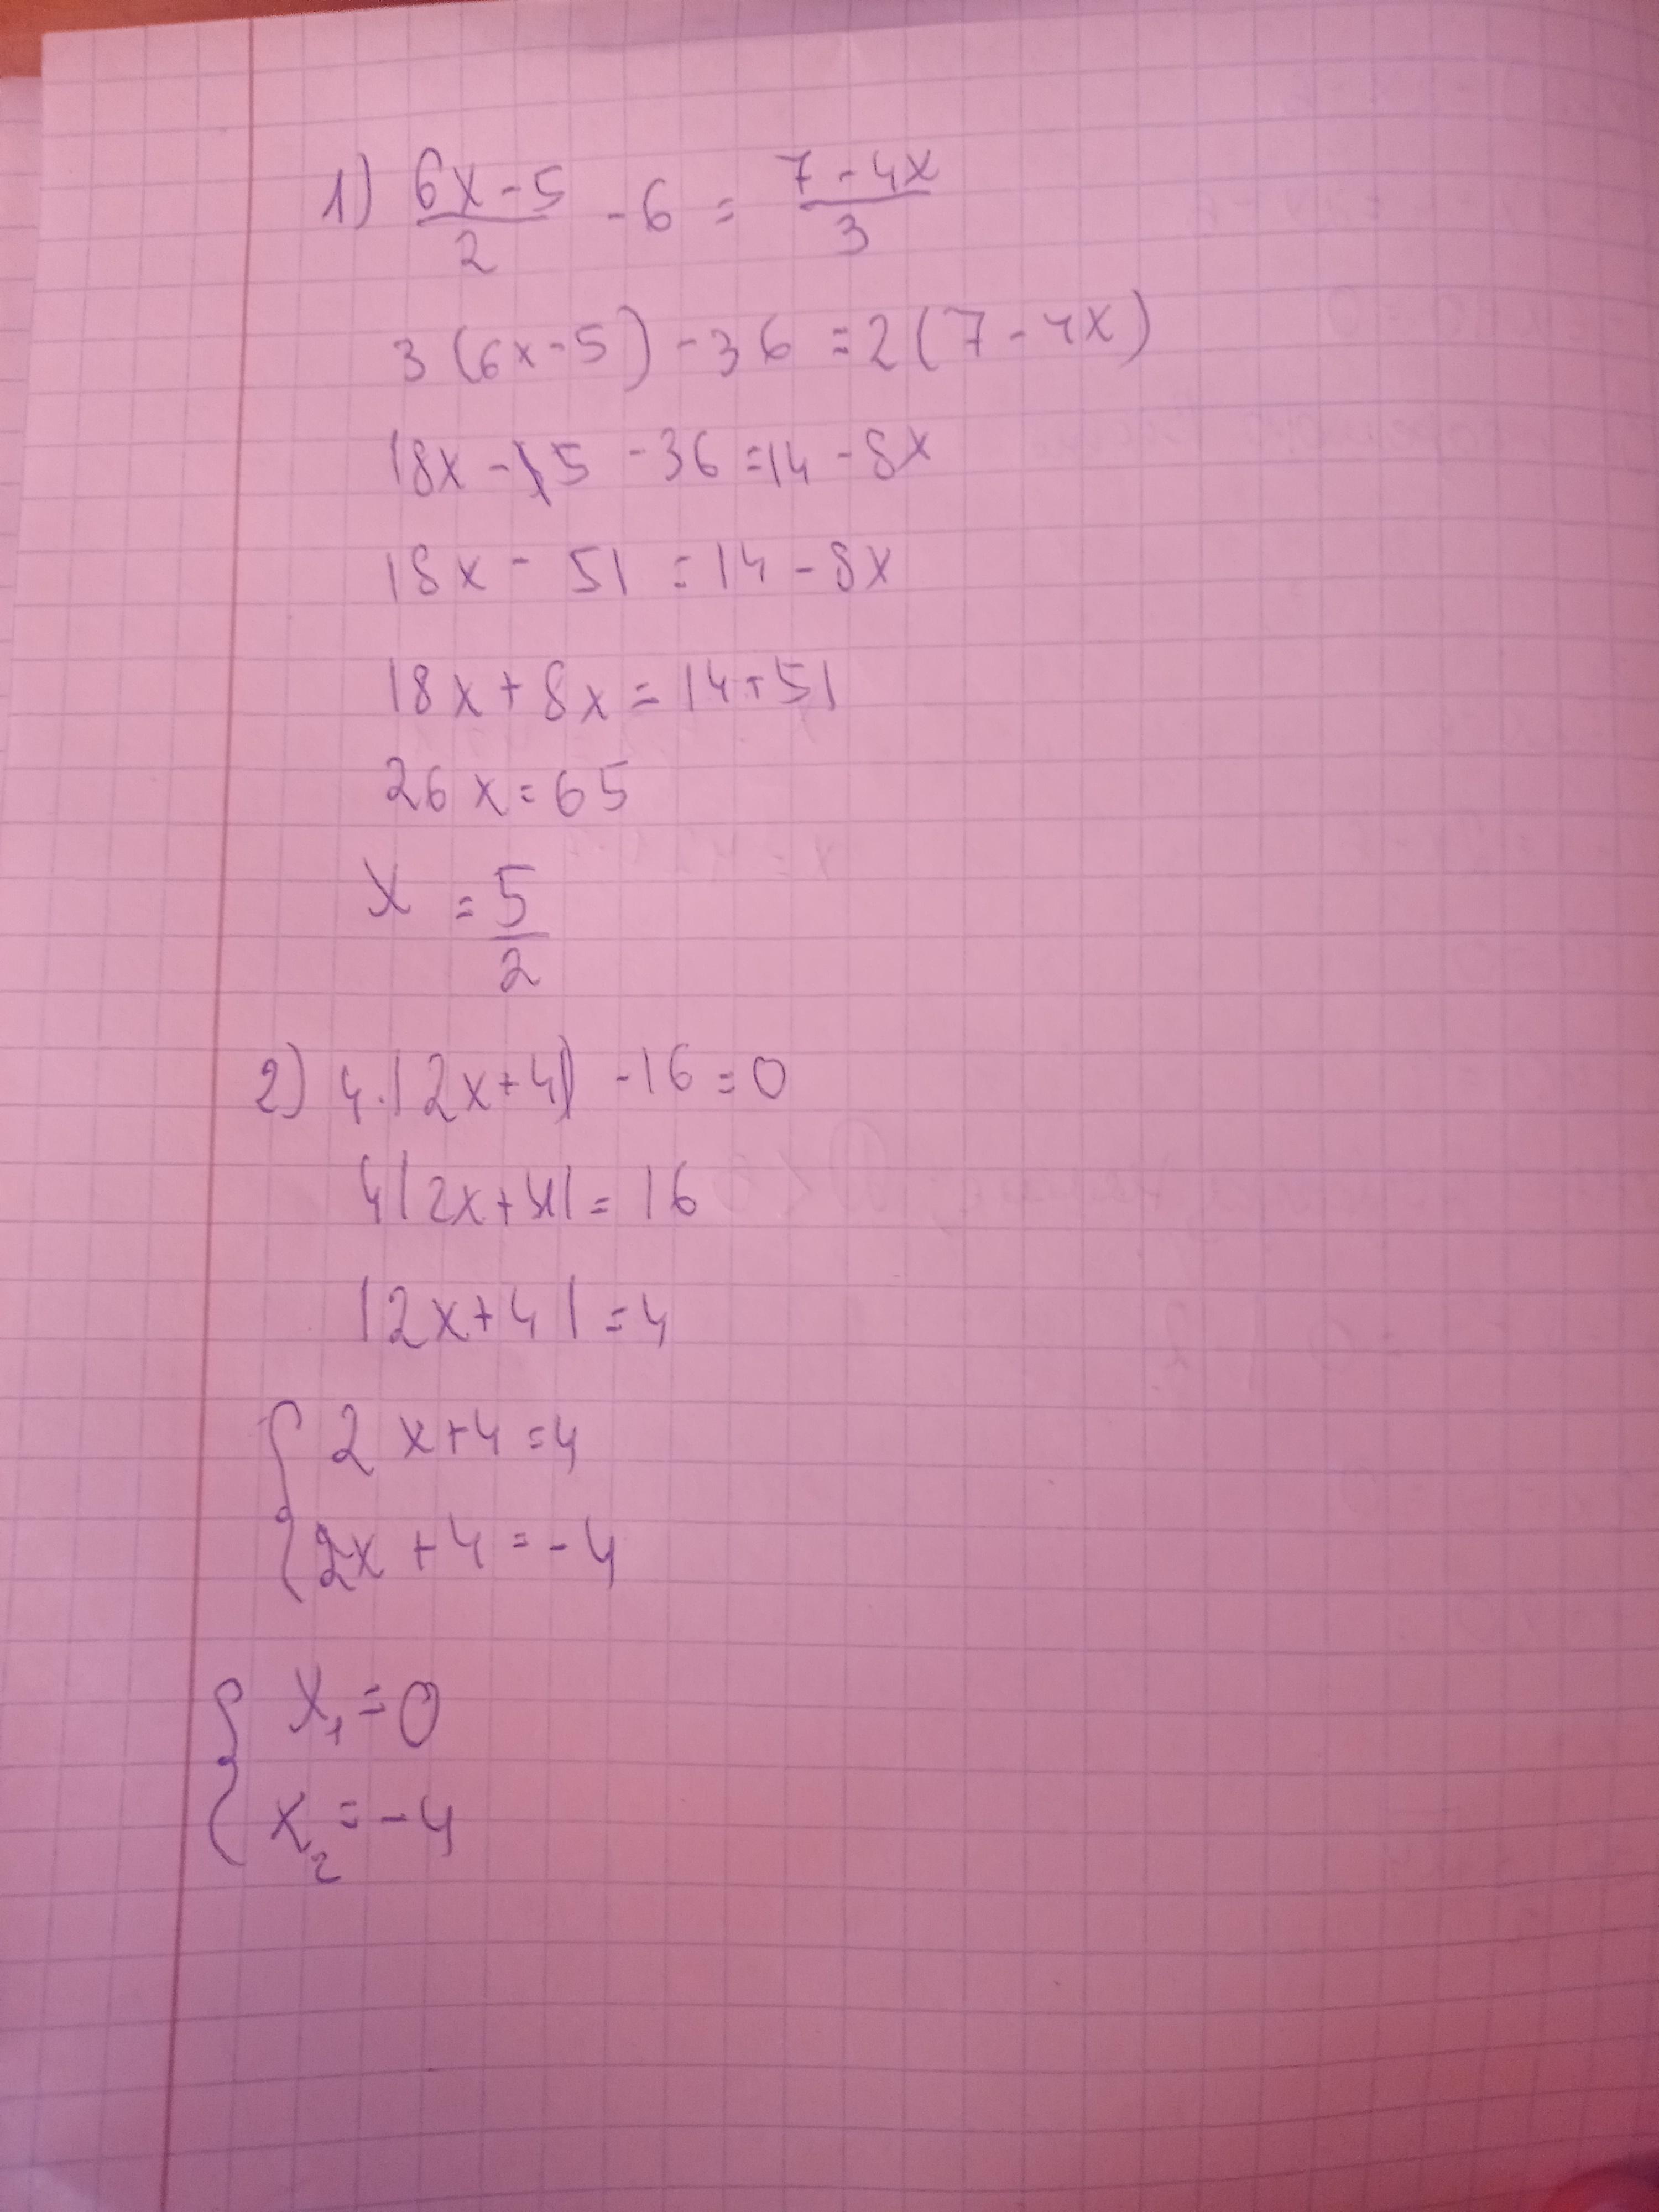 1) (6x-5)/2 - 6 = (7-4x)/3
3(6x-5)-36=2(7-4x)
18x-15-36=14-8x
18x-51=14-8x
18x+8x=14+51
26x=65
x=5/2
2) 4·|2x+4|-16=0
4|2x+4|=16
|2x+4|=4
{2x+4=4
2x+4=-4
{x₁=0
x₂=-4